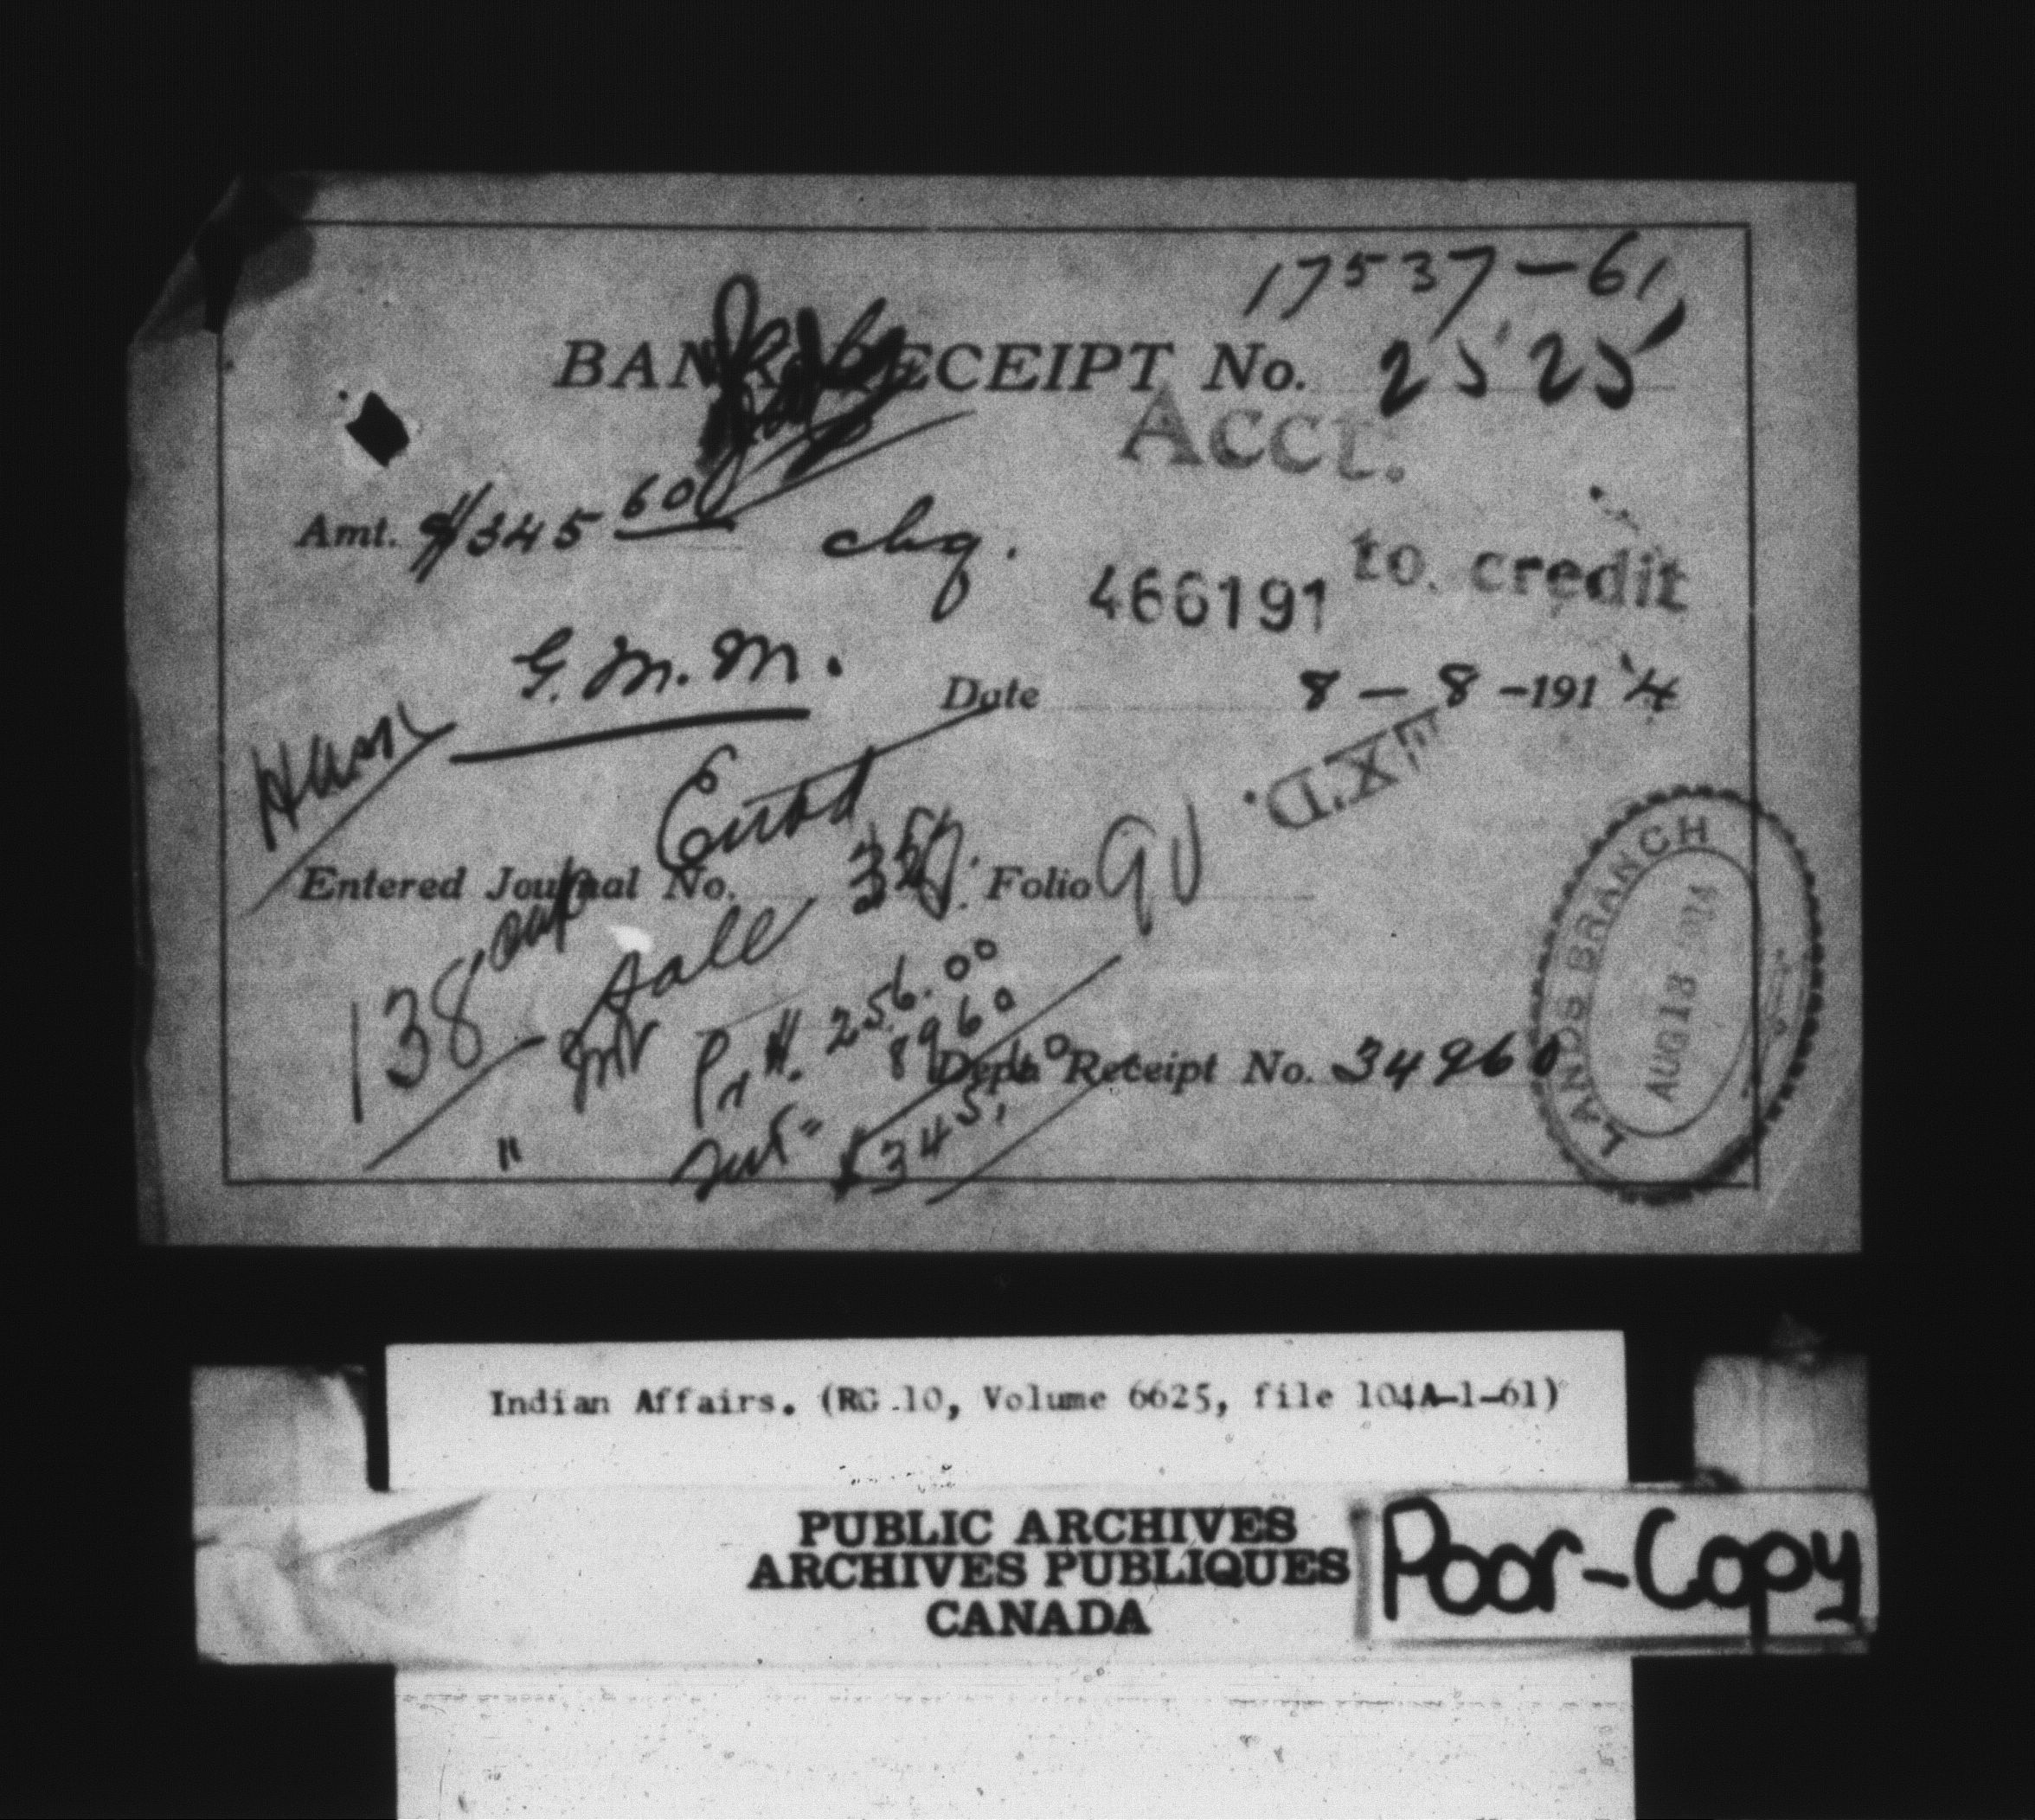 17537-61
BANK RECEIPT No. 2525
Acct.
Amt. $345 60 chq.
466191 to credit
G. M. M.
Date 8-8-1914
EX'D.
Entd
Entered Journal No. Folio 90
138
Sale
Pr H. 256.00
8960
Dept. Receipt No. 34960
Int " $345.60
"
LANDS BRANCH
AUG 13 1914
Indian Affairs. (RG 10, Volume 6625, file 104A-1-61)
PUBLIC ARCHIVES
ARCHIVES PUBLIQUES
CANADA
Poor-Copy